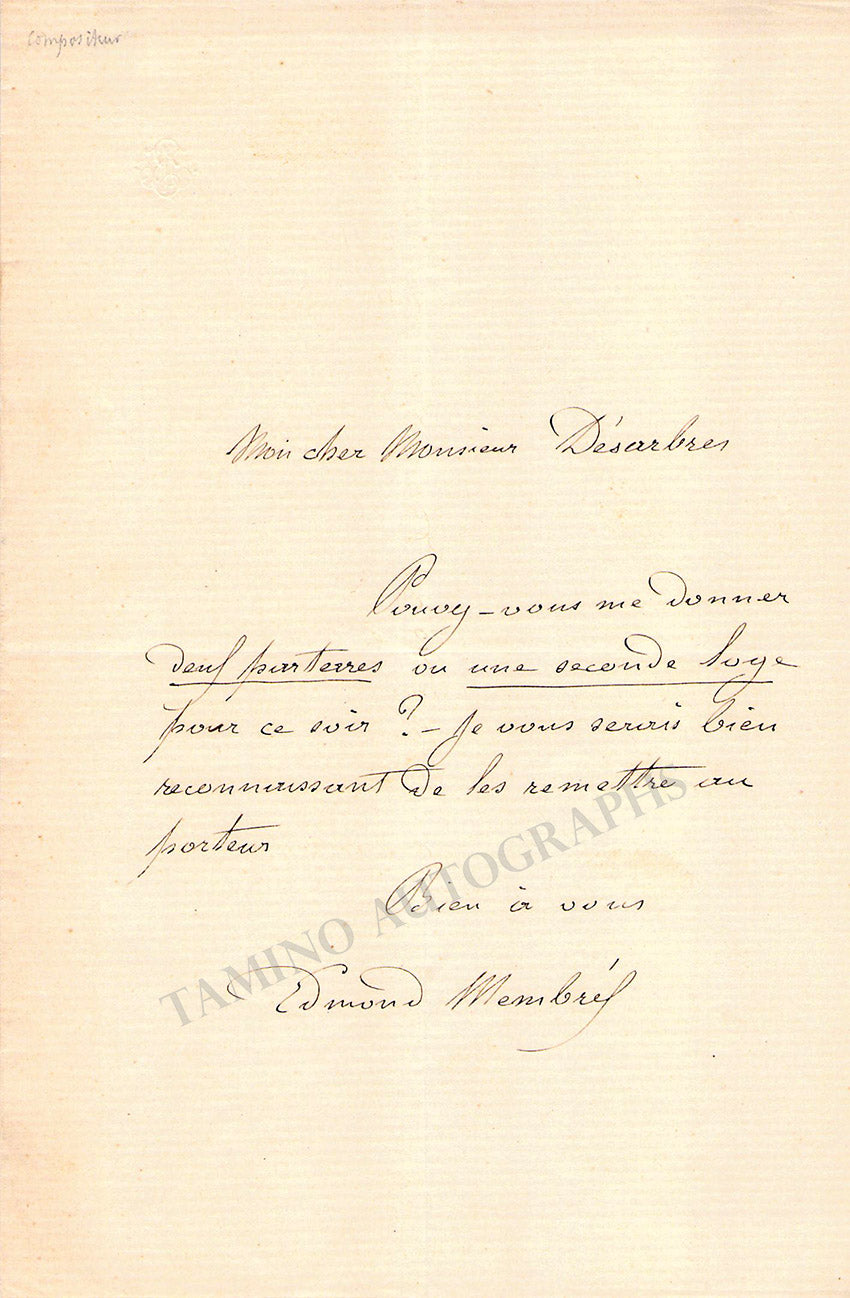 compositeur
Mon cher Monsieur Désarbres
Pouvez-vous me donner
deux parterres ou une seconde loge
pour ce soir ? - Je vous serais bien
reconnaissant de les remettre au
porteur
Bien à vous
Edmond Membrée
TAMINO AUTOGRAPHS